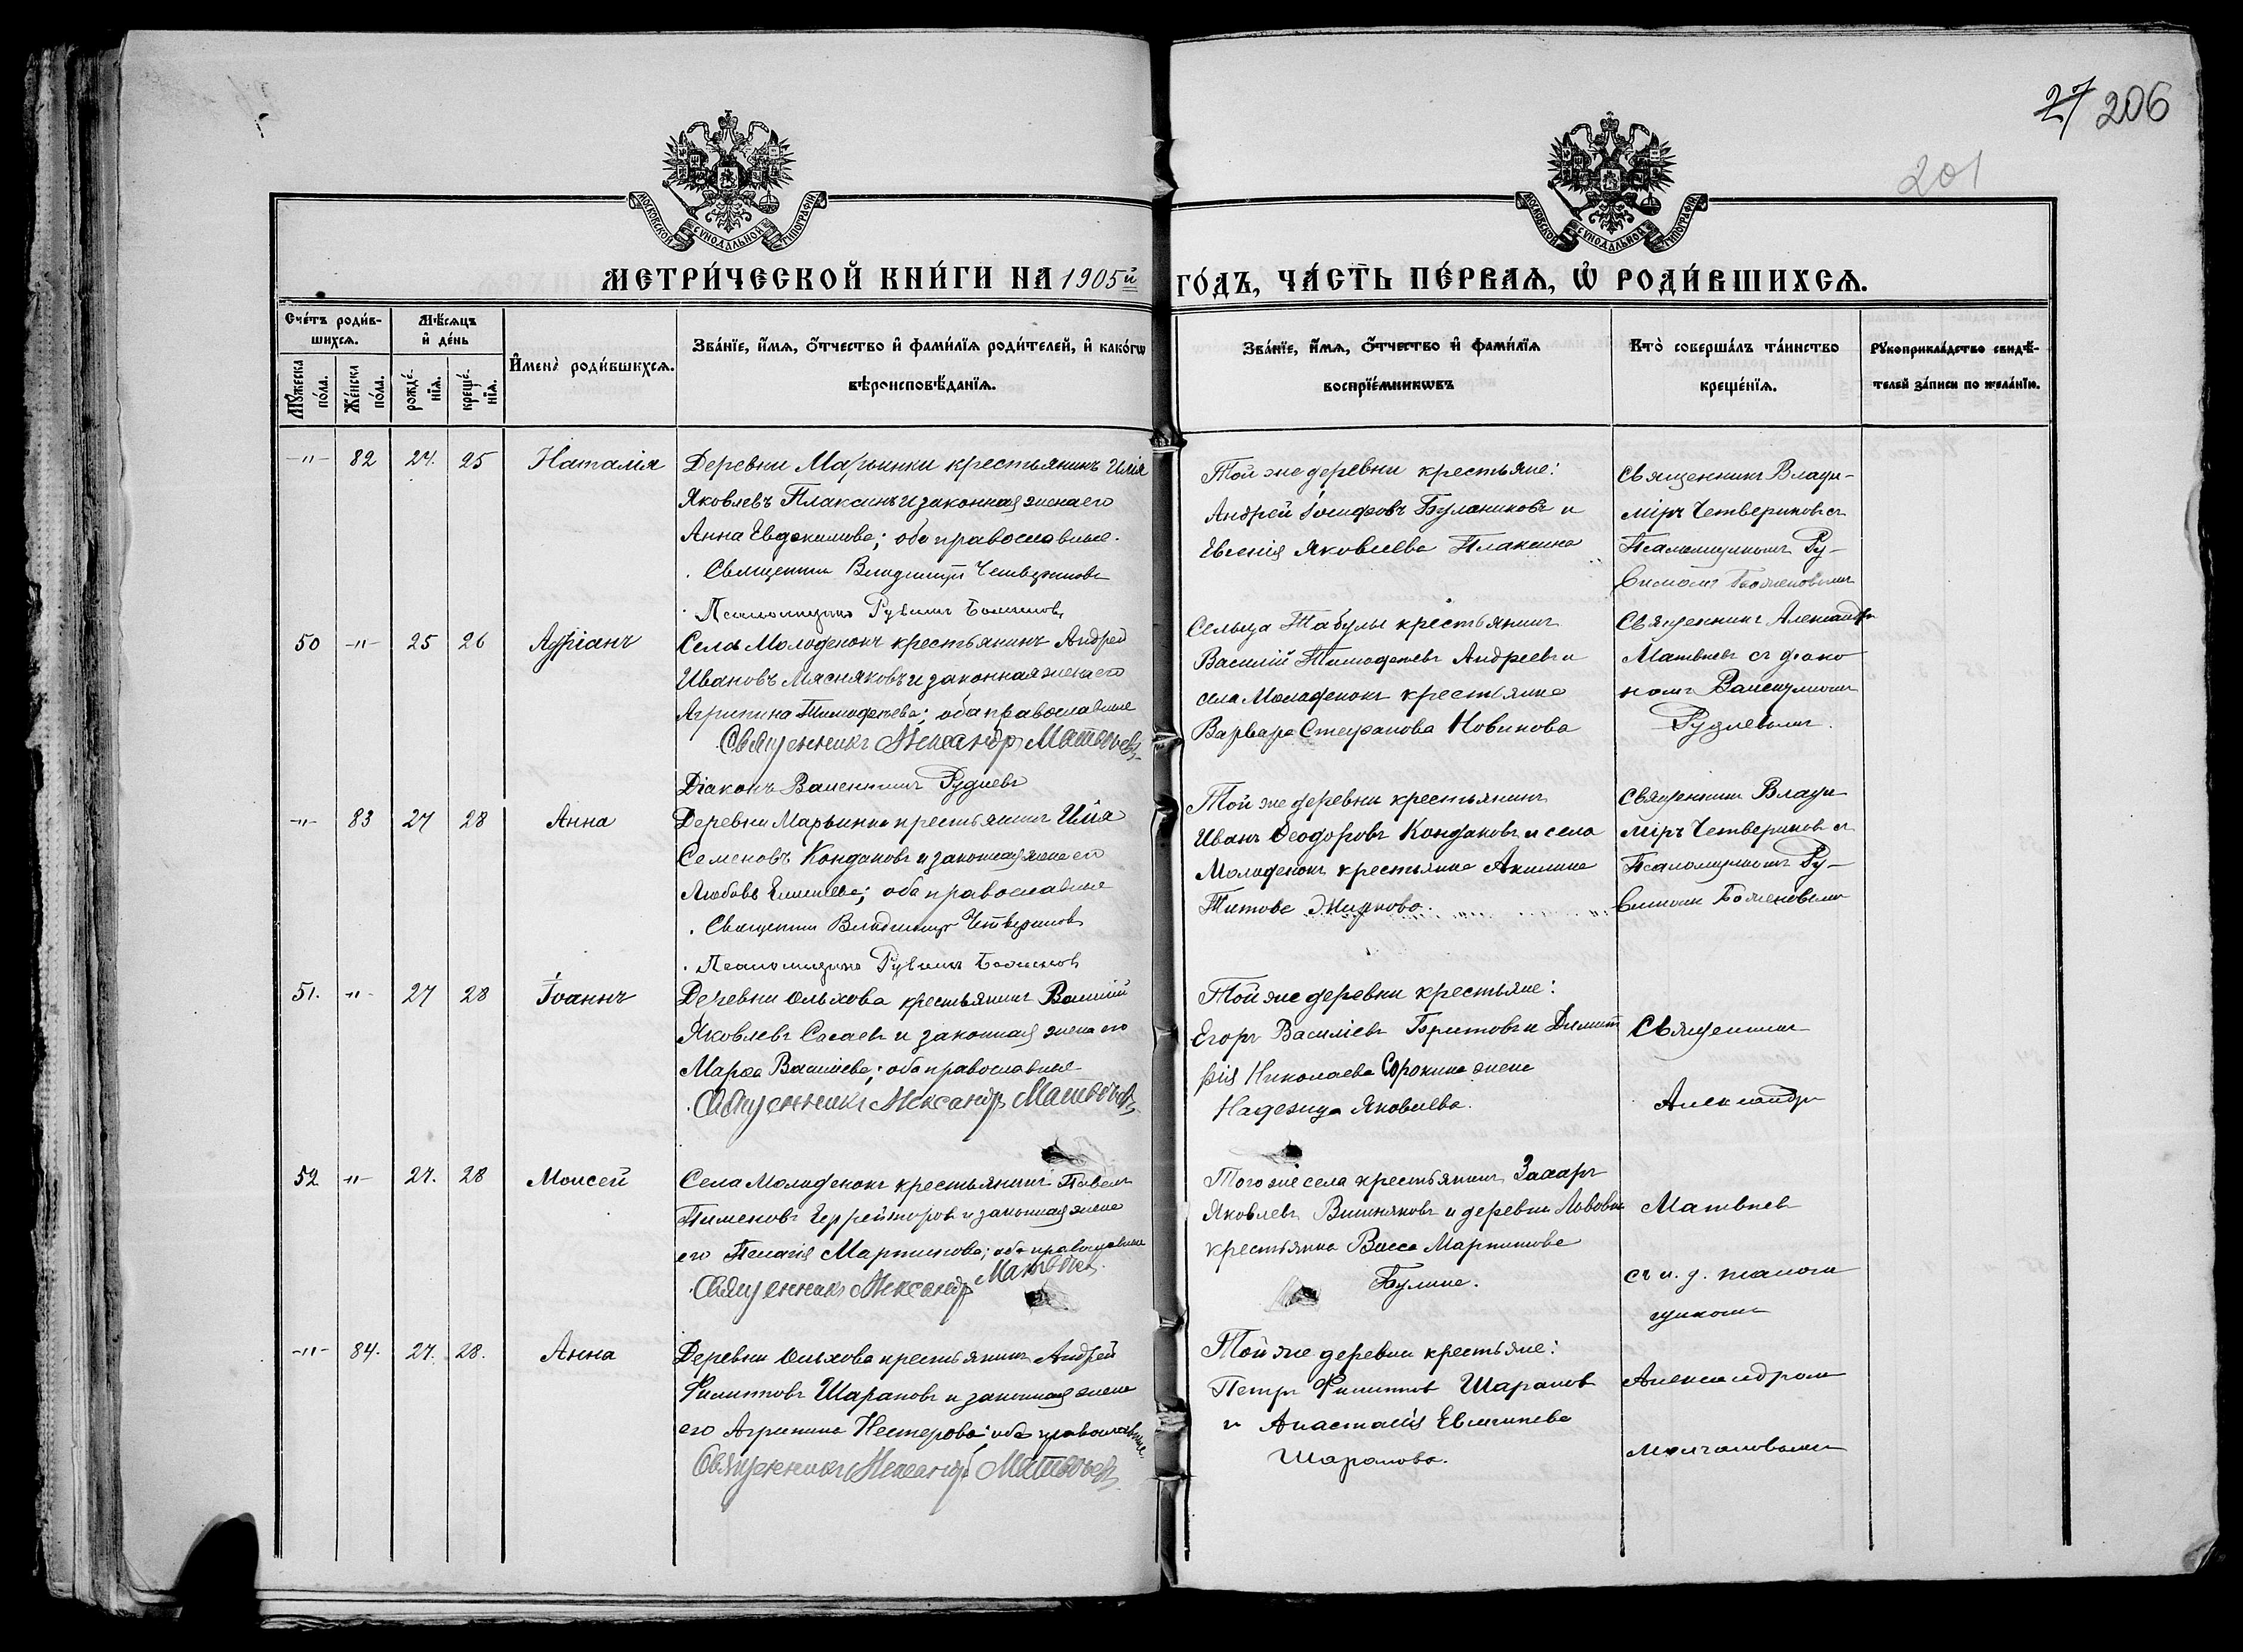 27 206
201
МОСКОВСКОЙ СУНОДАЛЬНОЙ ТИПОГРАФІИ
МОСКОВСКОЙ СУНОДАЛЬНОЙ ТИПОГРАФІИ
МЕТРИ́ЧЕСКОЙ КНИ́ГИ НА 1905й ГО́ДЪ, ЧА́СТЬ ПЕ́РВАѦ, Ѽ РОДИ́ВШИХСѦ.
Сче́тъ роди́в-
шихсѧ.
Мѣ́сѧцъ
и҆ де́нь
Мꙋ́жеска
по́ла.
Же́нска
по́ла.
рожде́-
нїѧ.
креще́-
нїѧ.
И҆мена̀ роди́вшихсѧ.
Зва́нїе, и҆́мѧ, ѻ҆́тчество и҆ фами́лїѧ роди́телей, и҆ како́гѡ
вѣроисповѣ́данїѧ.
Зва́нїе, и҆́мѧ, ѻ҆́тчество и҆ фами́лїѧ
воспрїе́мникѡвъ
Кто̀ соверша́лъ та́инство
креще́нїѧ.
Рꙋкоприкла́дство свидѣ́-
телей за́писи по жела́нїю.
-"- 82 27. 25 Наталія
Деревни Марьинки крестьянинъ Илія
Яковлевъ Плаксинъ и законная жена его
Анна Евдокимова; оба православные.
Священникъ Владиміръ Четвериковъ
Псаломщикъ Рувимъ Боженовъ
Той же деревни крестьяне:
Андрей Іосифовъ Булочниковъ и
Евгенія Яковлева Плаксина
Священникъ Влади-
міръ Четвериковъ съ
Псаломщикомъ Ру-
вимомъ Боженовымъ
50 -"- 25 26 Адріанъ
Села Молоденокъ крестьянинъ Андрей
Ивановъ Мясняковъ и законная жена его
Агрипина Тимофеева; оба православные
Священникъ Александръ Матвѣевъ
Діаконъ Валентинъ Рудневъ
Сельца Табулы крестьянинъ
Василій Тимофеевъ Андреевъ и
села Молоденокъ крестьянка
Варвара Стефанова Новикова
Священникъ Александръ
Матвѣевъ съ діако
номъ Валентиномъ
Рудневымъ.
-"- 83 27 28 Анна
Деревни Марьинки крестьянинъ Илія
Семеновъ Кондаковъ и законная жена его
Любовь; оба православные
Священникъ Владиміръ Четвериковъ
Псаломщикъ Рувимъ Боженовъ
Той же деревни крестьянинъ
Иванъ Ѳеодоровъ Кондаковъ и села
Молоденокъ крестьянка Акилина
Титова
Священникъ Влади
міръ Четвериковъ съ
Псаломщикомъ Ру-
вимомъ Боженовымъ
51. -"- 27 28 Іоаннъ
Деревни Ольхова крестьянинъ Василій
Яковлевъ Сасаевъ и законная жена его
Марѳа Василіева; оба православные
Священникъ Александръ Матвѣевъ
Той же деревни крестьяне:
Егоръ Василіевъ и Димит
рія Николаева Сорокина жена
Надежда Яковлева.
Священникъ
Александръ
52 -"- 27. 28 Моисей
Села Молоденокъ крестьянинъ Павелъ
Пименовъ Ефрейторовъ и законная жена
его Пелагія Мартинова; оба православные
Священникъ Александръ Матвѣевъ.
Того же села крестьянинъ Захаръ
Яковлевъ Вишняковъ и деревни Львовки
крестьянка Васса Мартинова
Булина.
Матвѣевъ
съ и. д. псалом
щикомъ
-"- 84. 27. 28. Анна
Деревни Ольхова крестьянинъ Андрей
Филипповъ Шараповъ и законная жена
его Агрипина Нестерова; оба православные.
Священникъ Александръ Матвѣевъ
Той же деревни крестьяне:
Петръ Филипповъ Шараповъ
и Анастасія Евлампіева
Шарапова.
Александромъ
Молчановымъ